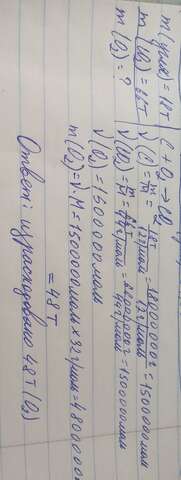 m(угля) = 18т
m(CO₂) = 66т
m(O₂) = ?
C + O₂ → CO₂
√(C) = m/M = 18т/12г/моль = 18000000г/12г/моль = 1500000моль
√(CO₂) = m/M = 66т/44г/моль = 66000000г/44г/моль = 1500000моль
√(O₂) = 1500000моль
m(O₂) = √·M = 1500000моль x 32г/моль = 4800000
= 48т
Ответ: израсходовано 48т (O₂)